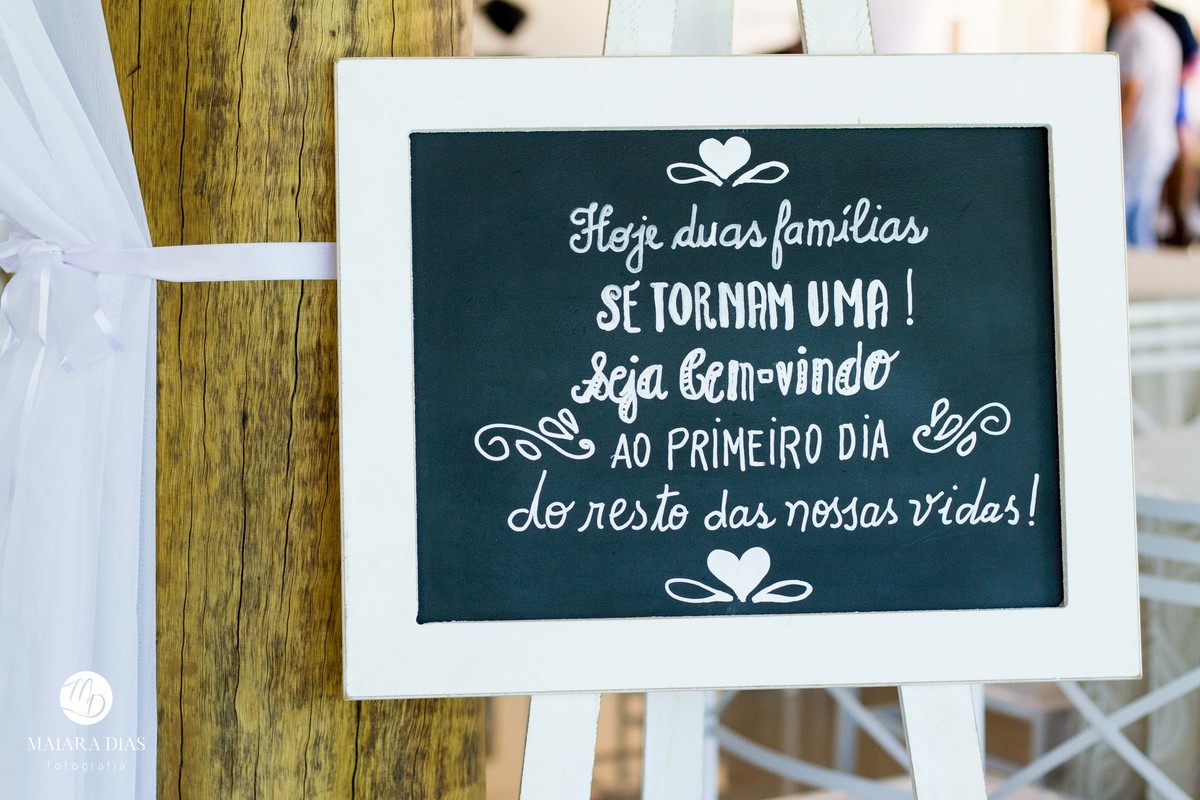 Hoje duas famílias
SE TORNAM UMA !
Seja bem-vindo
AO PRIMEIRO DIA
do resto das nossas vidas!
MD
MAIARA DIAS
fotografia